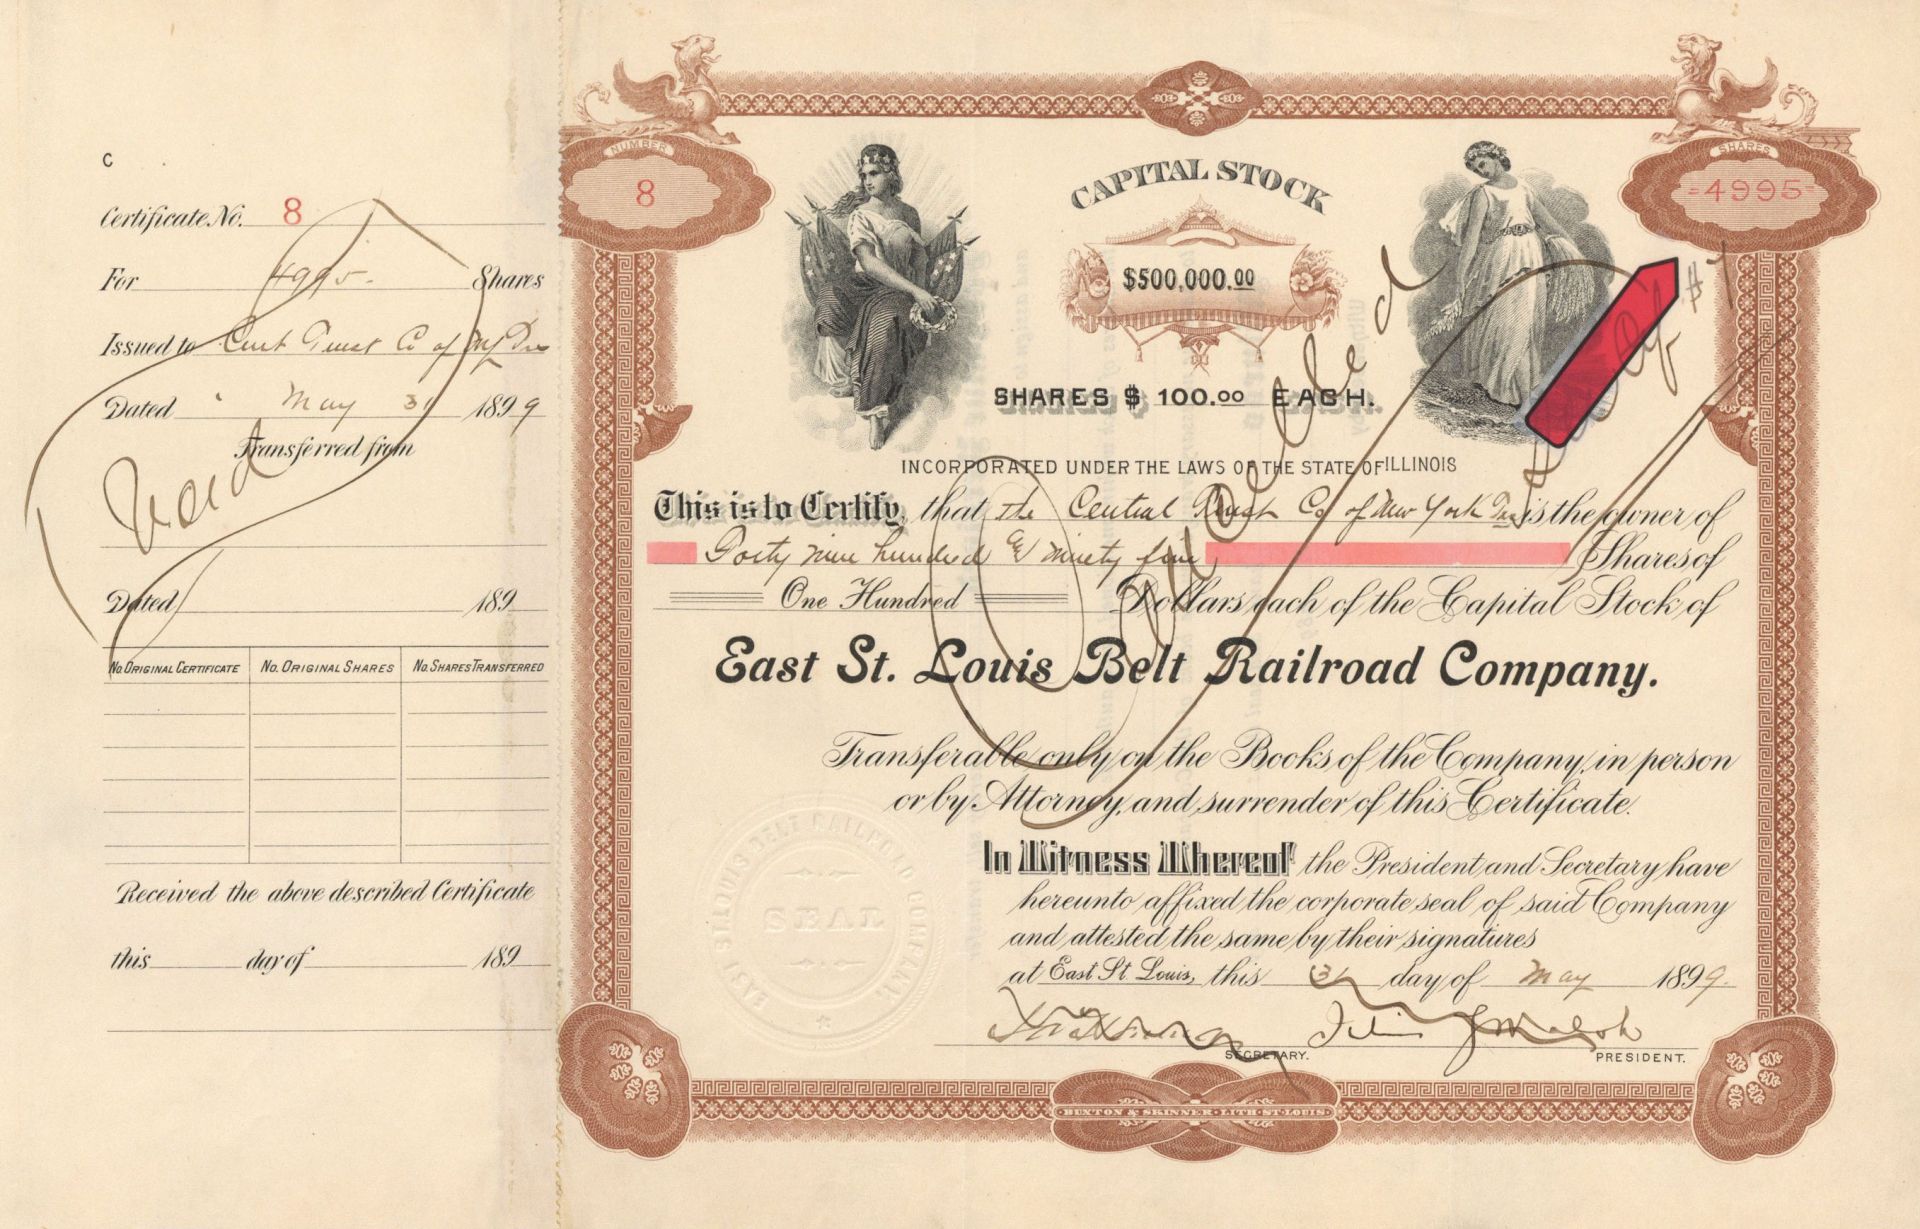 C
Certificate No. 8
For 4995. Shares
Issued to Cent Trust Co of NY Tre
Dated May 31 1899
Transferred from
Void
Dated 189
No. ORIGINAL CERTIFICATE No. ORIGINAL SHARES No. SHARES TRANSFERRED
Received the above described Certificate
this day of 189
NUMBER
8
SHARES
=4995=
CAPITAL STOCK
$500,000.00
SHARES $ 100.00 EACH.
INCORPORATED UNDER THE LAWS OF THE STATE OF ILLINOIS
This is to Certify, that the Central Trust Co of New York Tre is the owner of
Forty nine hundred & ninety five Shares of
One Hundred Dollars each of the Capital Stock of
East St. Louis Belt Railroad Company.
Transferable only on the Books of the Company, in person
or by Attorney, and surrender of this Certificate.
In Witness Whereof the President and Secretary have
hereunto affixed the corporate seal of said Company
and attested the same by their signatures
at East St Louis, this 31 day of May 1899.
SECRETARY. PRESIDENT.
EAST ST. LOUIS BELT RAILROAD COMPANY.
SEAL
Cancelled
#1
BUXTON & SKINNER · LITH · ST · LOUIS